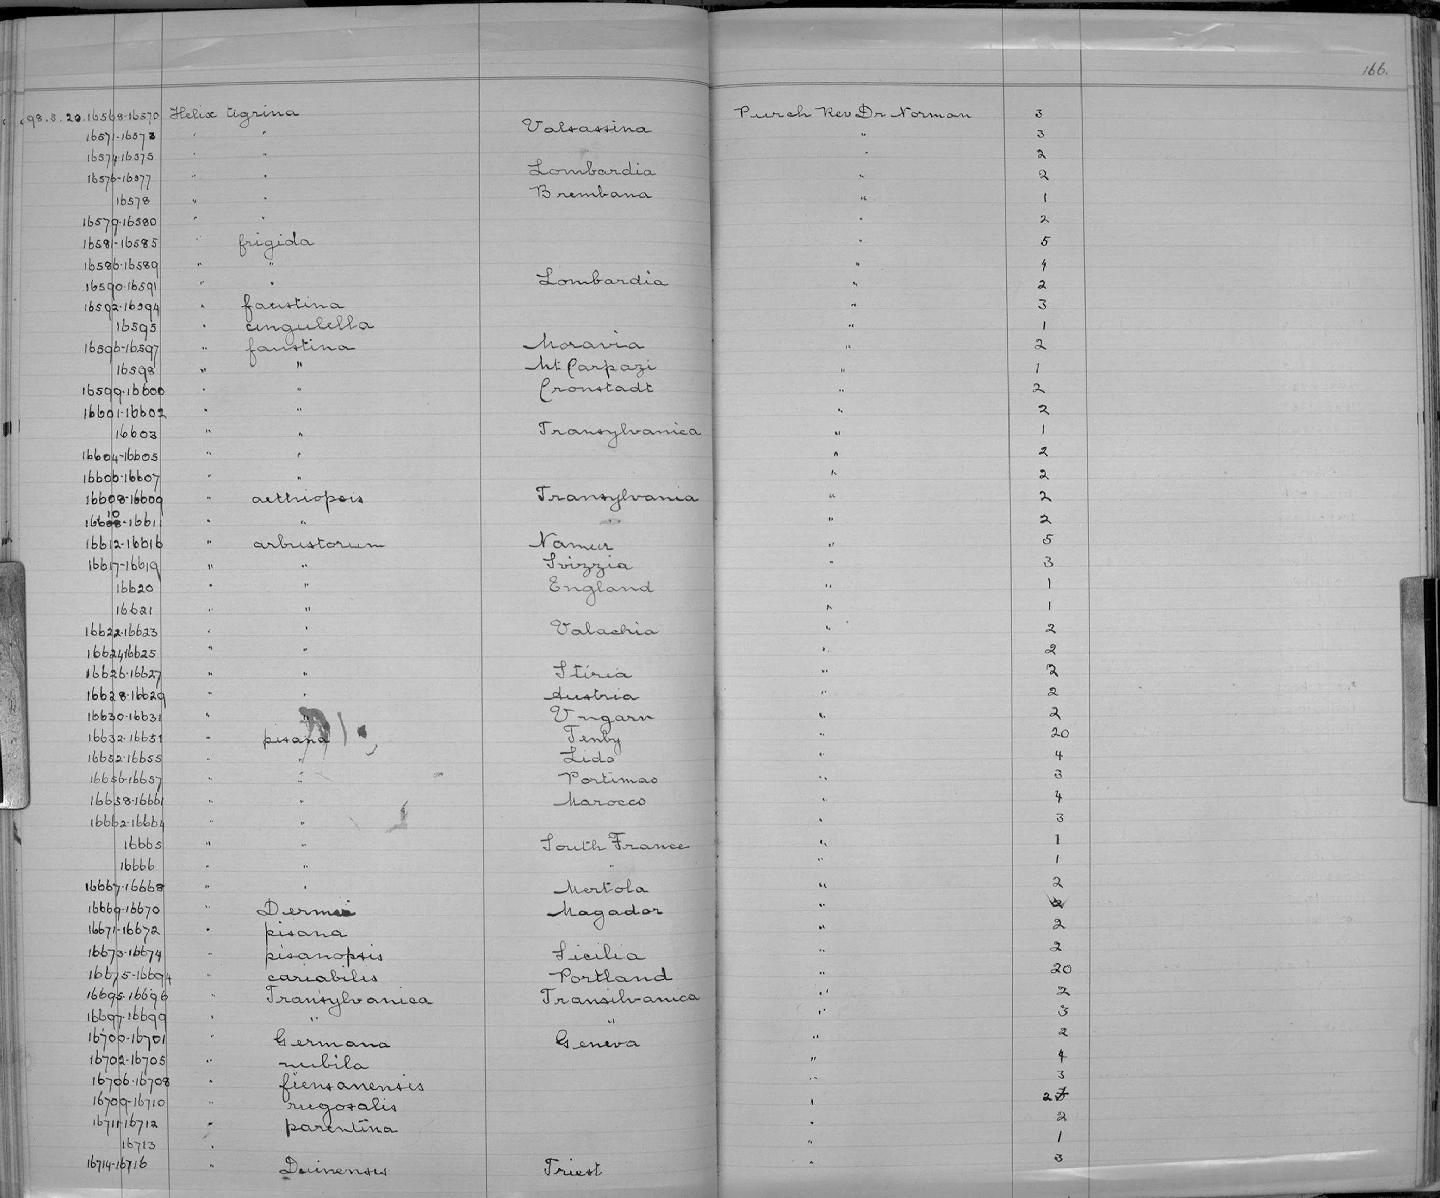 166.
98.8.20.16568-16570 Helix tigrina Purch Rev Dr Norman 3
16571-16573 " " Valsassina " 3
16574-16575 " " " 2
16576-16577 " " Lombardia " 2
16578 " " Brembana " 1
16579-16580 " " " 2
16581-16585 " frigida " 5
16586-16589 " " " 4
16590-16591 " " Lombardia " 2
16592-16594 " faustina " 3
16595 " cingulella " 1
16596-16597 " faustina Moravia " 2
16598 " " Mt Carpazi " 1
16599-16600 " " Cronstadt " 2
16601-16602 " " " 2
16603 " " Transylvanica " 1
16604-16605 " " " 2
16606-16607 " " 2
16608-16609 " aethiopsis Transylvania " 2
16610-16611 " " " 2
16612-16616 " arbustorum Namur " 5
16617-16619 " " Svizzia " 3
16620 " " England " 1
16621 " " " 1
16622-16623 " " Valachia " 2
16624-16625 " " " 2
16626-16627 " " Stiria " 2
16628-16629 " " Austria " 2
16630-16631 " " Ungarn " 2
16632-16651 " pisana Tenby " 20
16652-16655 " " Lido " 4
16656-16657 " " Portimao " 3
16658-16661 " " Marocco " 4
16662-16664 " " " 3
16665 " " South France " 1
16666 " " " " 1
16667-16668 " " Mertola " 2
16669-16670 " Magador " 2
16671-16672 " pisana " 2
16673-16674 " pisanopsis Sicilia " 2
16675-16694 " cariabilis Portland " 20
16695-16696 " Transylvanica Transilvanica " 2
16697-16699 " " " " 3
16700-16701 " Germana Geneva " 2
16702-16705 " nubila " 4
16706-16708 " fiensanensis " 3
16709-16710 " rugosalis " 2
16711-16712 " parentina " 2
16713 " " 1
16714-16716 " Duinensis Triest " 3